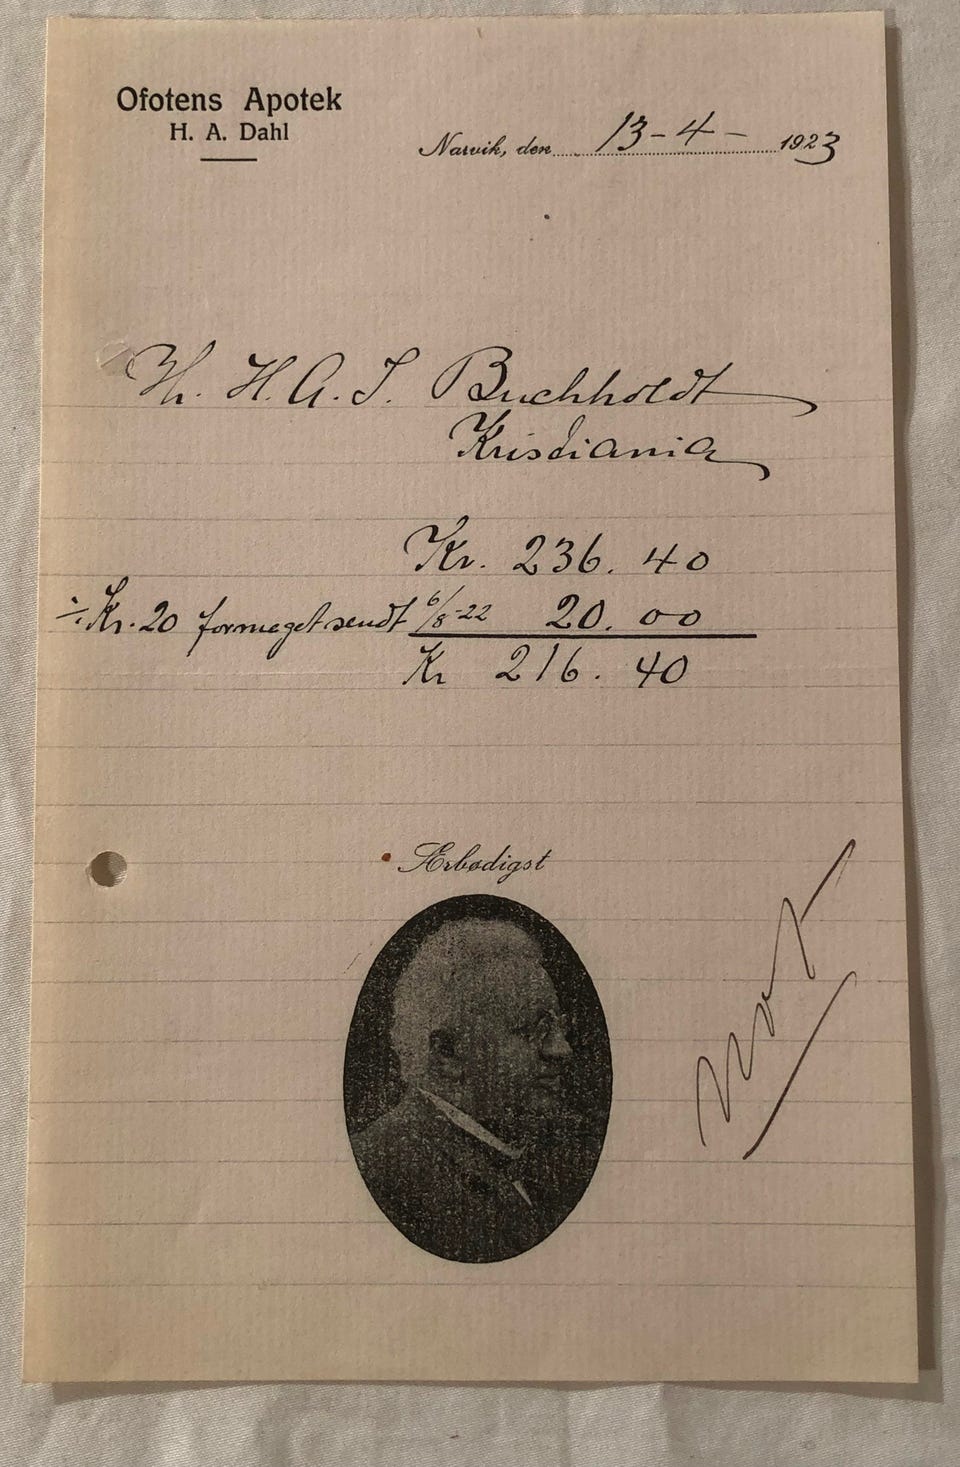 Ofotens Apotek
H. A. Dahl
Narvik, den 13-4- 1923
Hr. H. A. S. Buchholdt
Kristiania
Kr. 236.40
÷ Kr. 20 formeget sendt 6/8-22 20.00
Kr 216.40
Ærbødigst